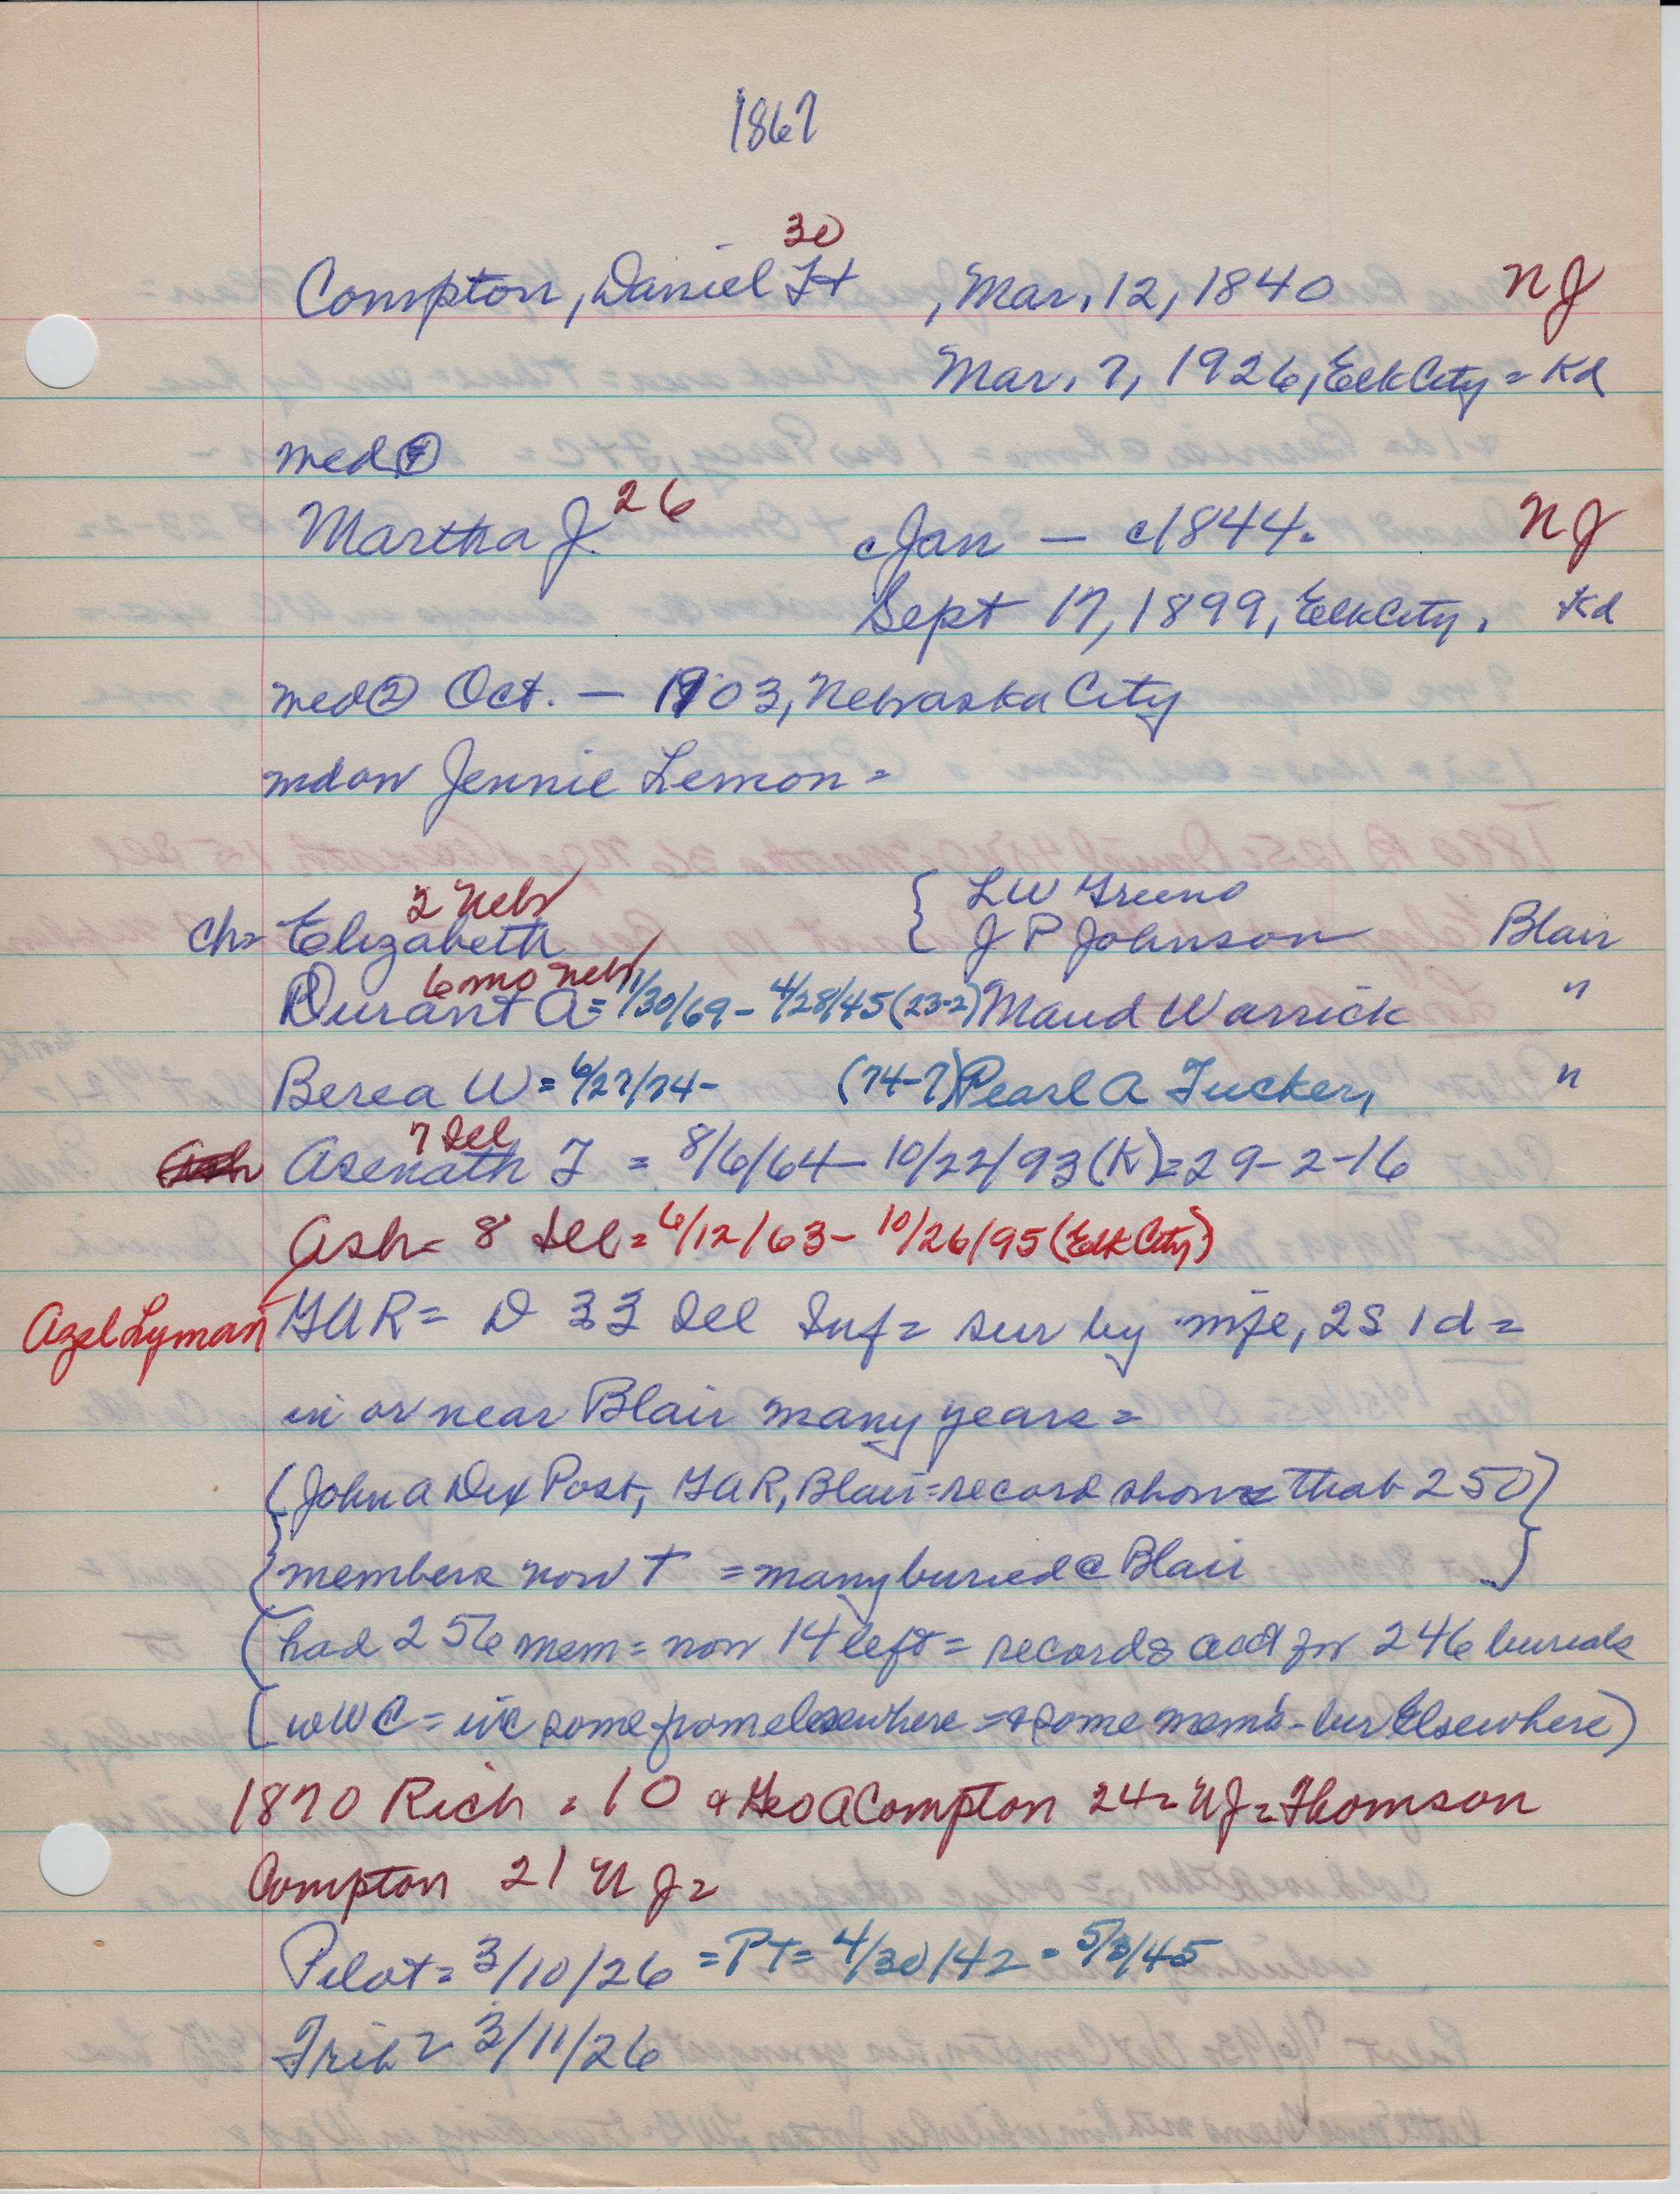 1867
30
Compton, Daniel Ft , Mar. 12, 1840 NJ
Mar. 7, 1926, Elk City = Kd
med ①
Martha J. 26 cJan — c1844. NJ
Sept 17, 1899, Elk City, Kd
med ② Oct. — 1903, Nebraska City
mdow Jennie Lemon =
2 Nebr { LW Greeno
ch= Elizabeth { J P Johnson Blair
6 mo Nebr
Durant A = 1/30/69 - 4/28/45 (23-2) Maud Warrick "
Berea W = 6/27/74 - (74-7) Pearl A Tucker, "
7 Del
Asenath F = 8/6/64 - 10/22/93 (K) = 29-2-16
Ash = 8 Del = 6/12/63 - 10/26/95 (Elk City)
Azel Lyman GAR = D 33 Del Inf = sur by wife, 2S 1d =
in or near Blair many years =
{ John A Dix Post, GAR, Blair = record shows that 250 }
{ members now † = many buried @ Blair }
( had 256 mem = now 14 left = records acct for 246 burials
( in WC = inc some from elsewhere = & some mem's - bur Elsewhere )
1870 Rich = 10 & Geo A Compton 24 = NJ = Thomson
Compton 21 NJ =
Pilot = 3/10/26 = PT = 4/30/42 = 5/3/45
Trib = 3/11/26